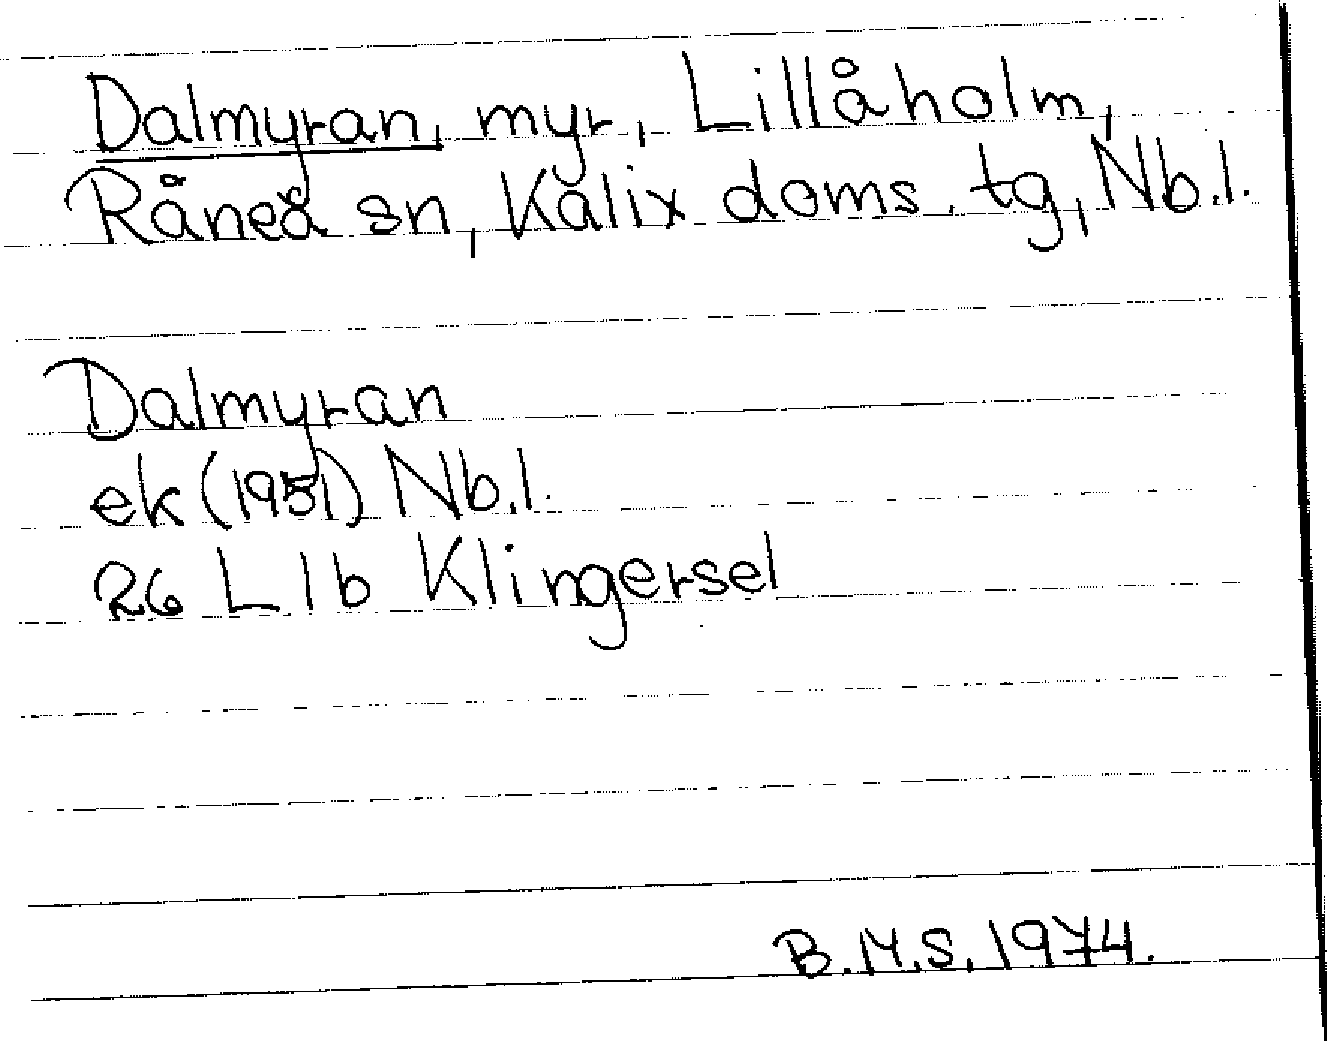 Dalmyran, myr, Lillåholm,
Råneå sn, Kalix doms. tg, Nb.l.
Dalmyran
ek (1951) Nb.l.
26 L 1b Klingersel
B.M.S. 1974.